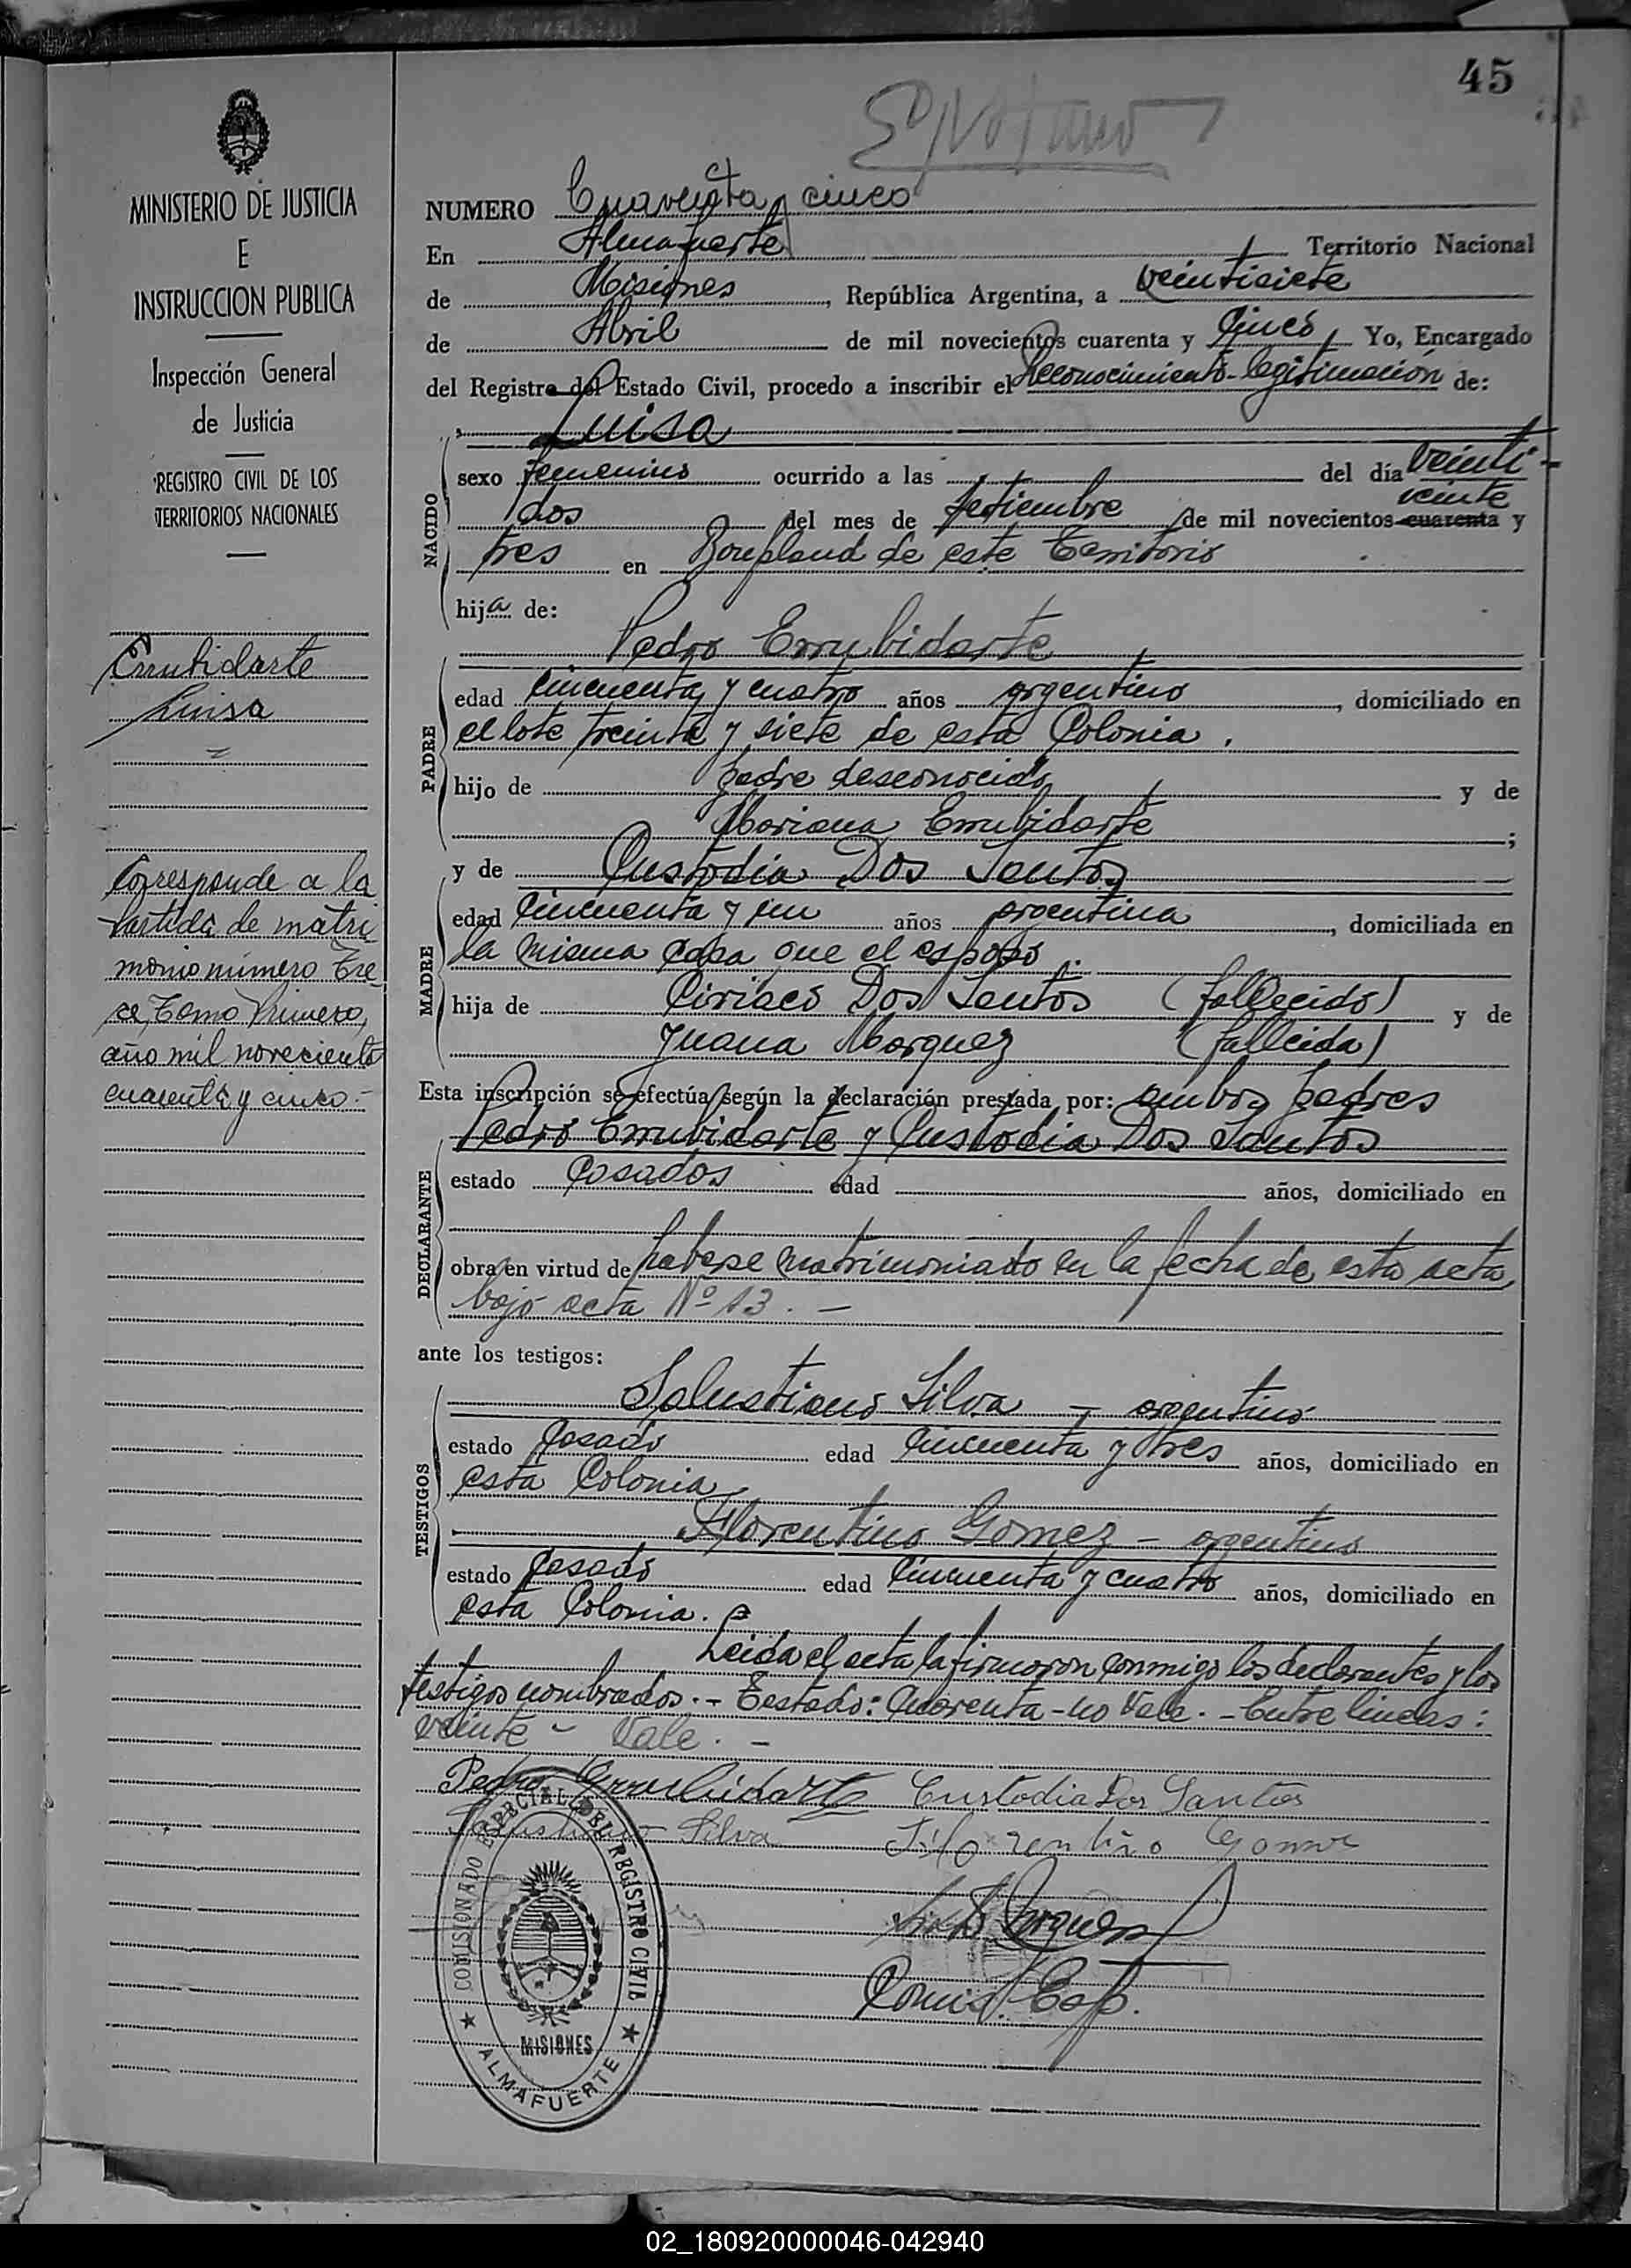 45
MINISTERIO DE JUSTICIA
E
INSTRUCCION PUBLICA
Inspección General
de Justicia
REGISTRO CIVIL DE LOS
TERRITORIOS NACIONALES
Errubidarte
Luisa
Corresponde a la
Partida de matri
monio número Tre
ce, Tomo Primero,
año mil novecientos
cuarenta y cinco.-
NUMERO Cuarenta y cinco
En Almafuerte Territorio Nacional
de Misiones, República Argentina, a veintisiete
de Abril de mil novecientos cuarenta y Cinco. Yo, Encargado
del Registro del Estado Civil, procedo a inscribir el Reconocimiento-Legitimación de:
Luisa
NACIDO
sexo femenino ocurrido a las del día veinti-
dos del mes de Setiembre de mil novecientos cuarenta veinte y
tres en Bonpland de este Territorio
hija de:
Pedro Errubidarte
PADRE
edad cincuenta y cuatro años argentino, domiciliado en
el lote treinta y siete de esta Colonia.
hijo de padre desconocido y de
Mariana Errubidarte;
y de Custodia Dos Santos
MADRE
edad Cincuenta y un años argentina, domiciliada en
la misma casa que el esposo.
hija de Ciriaco Dos Santos (fallecido) y de
Juana Marquez (fallecida)
Esta inscripción se efectúa según la declaración prestada por: ambos padres
Pedro Errubidarte y Custodia Dos Santos
DECLARANTE
estado Casados edad años, domiciliado en
obra en virtud de haberse matrimoniado en la fecha de esta acta
bajo acta Nº 13. -
ante los testigos:
TESTIGOS
Salustiano Silva - argentino
estado Casado edad Cincuenta y tres años, domiciliado en
esta Colonia
Florentino Gomez - argentino
estado Casado edad Cincuenta y cuatro años, domiciliado en
esta Colonia.
Leida el acta la firmaron conmigo los declarantes y los
testigos nombrados.- Testado: Cuarenta-no Vale.- Entre lineas:
veinte - Vale. -
Pedro Errubidarte Custodia Dos Santos
Salustiano Silva Florentino Gomez
Comis. Esp.
COMISIONADO ESPECIAL DEL REGISTRO CIVIL
MISIONES
ALMAFUERTE
02_180920000046-042940